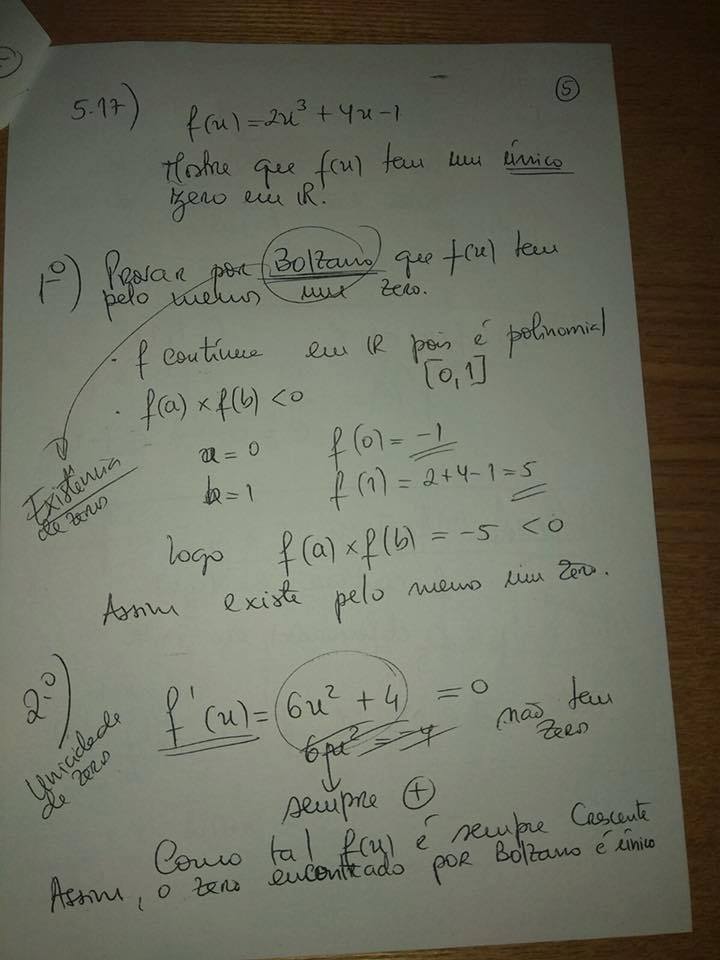 5
5.17) f(x) = 2x³ + 4x - 1
Mostre que f(x) tem um único
zero em ℝ.
1º) Provar por Bolzano que f(x) tem
pelo menos um zero.
· f contínua em ℝ pois é polinomial
[0,1]
· f(a) × f(b) < 0
a = 0 f(0) = -1
b = 1 f(1) = 2+4-1 = 5
Existência
de zeros
logo f(a) × f(b) = -5 < 0
Assim existe pelo menos um zero.
2.º) f'(x) = 6x² + 4 = 0 não tem
zero
6x² = -4
Unicidade
de zero
sempre +
Como tal f(x) é sempre Crescente
Assim, o zero encontrado por Bolzano é único